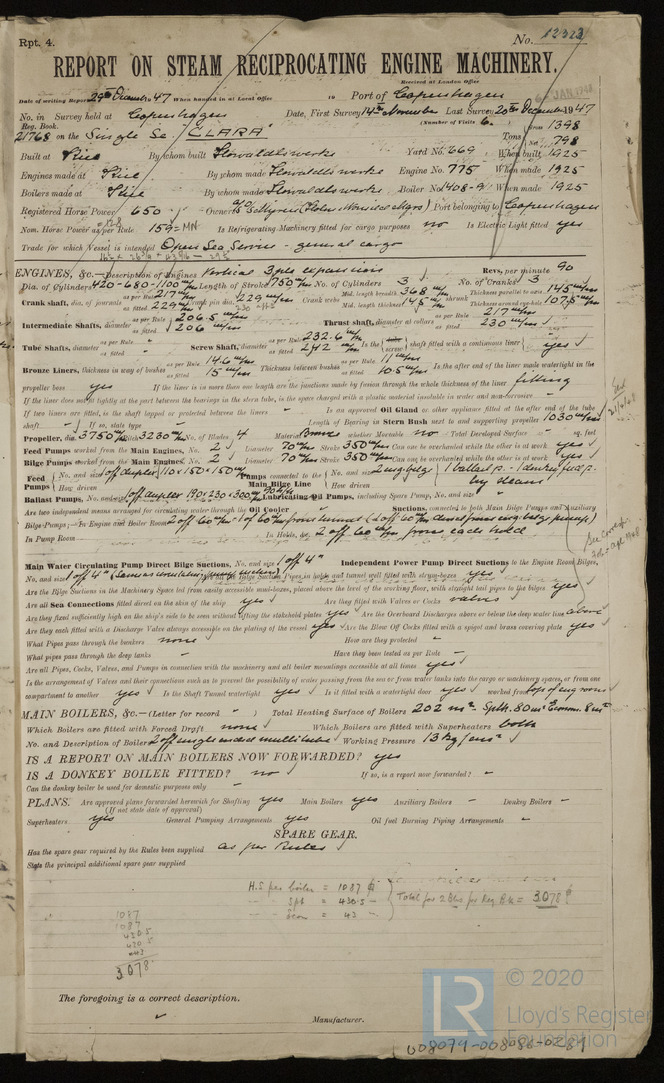 Rpt. 4.
No. 12323
REPORT ON STEAM RECIPROCATING ENGINE MACHINERY.
Received at London Office
Date of writing Report 29th December 1947 When handed in at Local Office 19 Port of Copenhagen
No. in Survey held at Copenhagen Date, First Survey 14th November Last Survey 20th December 1947
Reg. Book. (Number of Visits 6.
21768 on the Single Sc. "CLARA" Tons Gross 1398
Net 798
Built at Kiel By whom built Howaldtswerke Yard No. 669 When built 1925
Engines made at Kiel By whom made Howaldtswerke Engine No. 775 When made 1925
Boilers made at Kiel By whom made Howaldtswerke Boiler No. 1408-9 When made 1925
Registered Horse Power 650 Owners Port belonging to Copenhagen
Nom. Horse Power as per Rule 159=MN Is Refrigerating Machinery fitted for cargo purposes no Is Electric Light fitted yes
Trade for which Vessel is intended Open Sea Service - general cargo
ENGINES, &c.—Description of Engines Vertical 3ple expansion Revs. per minute 90
Dia. of Cylinders 420-680-1100 m/m Length of Stroke 750 m/m No. of Cylinders 3 No. of Cranks 3
Crank shaft, dia. of journals as per Rule 217 m/m as fitted 229 m/m Crank pin dia. 229 m/m Crank webs Mid. length breadth 368 m/m Mid. length thickness 145 m/m shrunk Thickness parallel to axis 145 m/m Thickness around eye-hole 107.5 m/m
Intermediate Shafts, diameter as per Rule 206.5 m/m as fitted 206 m/m Thrust shaft, diameter at collars as per Rule 217 m/m as fitted 230 m/m
Tube Shafts, diameter as per Rule " as fitted " Screw Shaft, diameter as per Rule 232.6 m/m as fitted 242 m/m Is the screw shaft fitted with a continuous liner yes
Bronze Liners, thickness in way of bushes as per Rule 14.6 m/m as fitted 15 m/m Thickness between bushes as per Rule 11 m/m as fitted 10.5 m/m Is the after end of the liner made watertight in the
propeller boss yes If the liner is in more than one length are the junctions made by fusion through the whole thickness of the liner fitting
If the liner does not fit tightly at the part between the bearings in the stern tube, is the space charged with a plastic material insoluble in water and non-corrosive "
If two liners are fitted, is the shaft lapped or protected between the liners " Is an approved Oil Gland or other appliance fitted at the after end of the tube
shaft " If so, state type " Length of Bearing in Stern Bush next to and supporting propeller 1030 m/m
Propeller, dia. 3750 m/m Pitch 3230 m/m No. of Blades 4 Material Bronze whether Moveable no Total Developed Surface sq. feet
Feed Pumps worked from the Main Engines, No. 2 Diameter 70 m/m Stroke 350 m/m Can one be overhauled while the other is at work yes
Bilge Pumps worked from the Main Engines, No. 2 Diameter 70 m/m Stroke 350 m/m Can one be overhauled while the other is at work yes
Feed Pumps No. and size 1 off duplex 110x150x150 m/m How driven Pumps connected to the Main Bilge Line No. and size 2 eng. bilg How driven 1 ballast p. - 1 donkey feed p. by steam
Ballast Pumps, No. and size 1 off duplex 190x230x300 m/m Lubricating Oil Pumps, including Spare Pump, No. and size "
Are two independent means arranged for circulating water through the Oil Cooler " Suctions, connected to both Main Bilge Pumps and Auxiliary
Bilge Pumps—In Engine and Boiler Room 2 off 60 m/m - 1 of 60 m/m from tunnel (2 off 60 m/m direct from eng. bilge pumps)
In Pump Room In Holds, &c. 2 off 60 m/m from each hold
Main Water Circulating Pump Direct Bilge Suctions, No. and size 1 off 4" Independent Power Pump Direct Suctions to the Engine Room Bilges,
No. and size 1 off 4" Are all the Bilge Suction Pipes in holds and tunnel well fitted with strum-boxes yes
Are the Bilge Suctions in the Machinery Space led from easily accessible mud-boxes, placed above the level of the working floor, with straight tail pipes to the bilges yes
Are all Sea Connections fitted direct on the skin of the ship yes Are they fitted with Valves or Cocks valves
Are they fixed sufficiently high on the ship's side to be seen without lifting the stokehold plates yes Are the Overboard Discharges above or below the deep water line above
Are they each fitted with a Discharge Valve always accessible on the plating of the vessel yes Are the Blow Off Cocks fitted with a spigot and brass covering plate yes
What Pipes pass through the bunkers none How are they protected "
What pipes pass through the deep tanks " Have they been tested as per Rule "
Are all Pipes, Cocks, Valves, and Pumps in connection with the machinery and all boiler mountings accessible at all times yes
Is the arrangement of Valves and their connections such as to prevent the possibility of water passing from the sea or from water tanks into the cargo or machinery spaces, or from one
compartment to another yes Is the Shaft Tunnel watertight yes Is it fitted with a watertight door yes worked from top of eng. room
MAIN BOILERS, &c.—(Letter for record " ) Total Heating Surface of Boilers 202 m² Spth. 80 m² Econom. 8 m²
Which Boilers are fitted with Forced Draft none Which Boilers are fitted with Superheaters both
No. and Description of Boilers 2 off single ended multitube Working Pressure 13 kg/cm²
IS A REPORT ON MAIN BOILERS NOW FORWARDED? yes
IS A DONKEY BOILER FITTED? no If so, is a report now forwarded? "
Can the donkey boiler be used for domestic purposes only "
PLANS. Are approved plans forwarded herewith for Shafting yes Main Boilers yes Auxiliary Boilers " Donkey Boilers "
(If not state date of approval)
Superheaters yes General Pumping Arrangements yes Oil fuel Burning Piping Arrangements "
SPARE GEAR.
Has the spare gear required by the Rules been supplied as per Rules
State the principal additional spare gear supplied
H.S per boiler = 1087
Spt = 430.5
Econ = 43
Total for 2 Blrs per Reg. Bk = 3078
1087
1087
430.5
430.5
43
3078
The foregoing is a correct description.
Manufacturer.
© 2020
Lloyd's Register
Foundation
008079-008086-0281